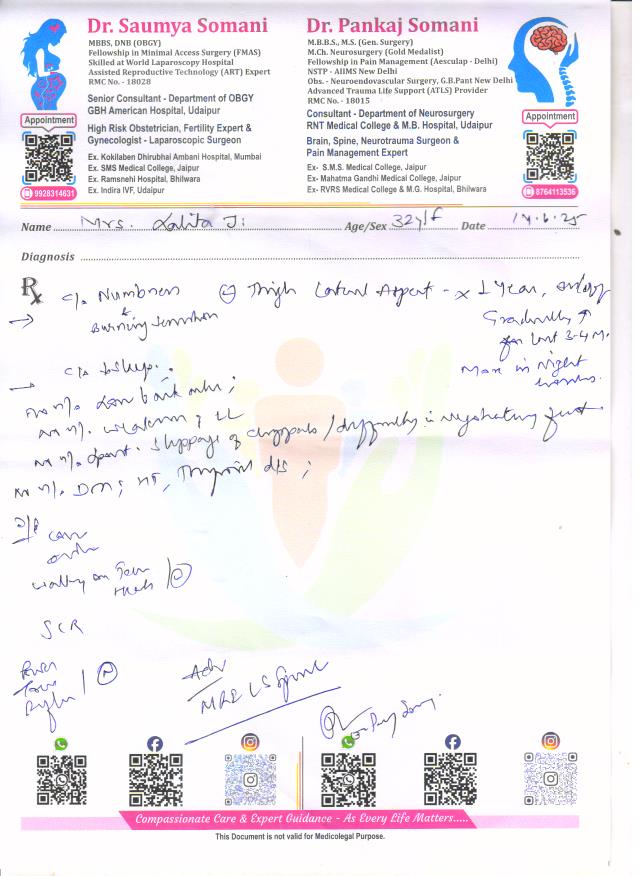 Dr. Saumya Somani
MBBS, DNB (OBGY)
Fellowship in Minimal Access Surgery (FMAS)
Skilled at World Laparoscopy Hospital
Assisted Reproductive Technology (ART) Expert
RMC No. - 18028
Senior Consultant - Department of OBGY
GBH American Hospital, Udaipur
High Risk Obstetrician, Fertility Expert &
Gynecologist - Laparoscopic Surgeon
Ex. Kokilaben Dhirubhai Ambani Hospital, Mumbai
Ex. SMS Medical College, Jaipur
Ex. Ramsnehi Hospital, Bhilwara
Ex. Indira IVF, Udaipur
Appointment
9928314631
Dr. Pankaj Somani
M.B.B.S., M.S. (Gen. Surgery)
M.Ch. Neurosurgery (Gold Medalist)
Fellowship in Pain Management (Aesculap - Delhi)
NSTP - AIIMS New Delhi
Obs. - Neuroendovascular Surgery, G.B.Pant New Delhi
Advanced Trauma Life Support (ATLS) Provider
RMC No. - 18015
Consultant - Department of Neurosurgery
RNT Medical College & M.B. Hospital, Udaipur
Brain, Spine, Neurotrauma Surgeon &
Pain Management Expert
Ex- S.M.S. Medical College, Jaipur
Ex- Mahatma Gandhi Medical College, Jaipur
Ex- RVRS Medical College & M.G. Hospital, Bhilwara
Appointment
8764113536
Name Mrs. Lalita Ji Age/Sex 32y/f Date 14.6.25
Diagnosis
Rx c/o Numbness Thigh Lateral Aspect - x 1 Year,
& Burning sensation
Gradually ↑
for last 3-4 M.
Max in night
c/o
n/o Low back ache ;
n/o weakness LL
n/o slippage of chappals / difficulty in
n/o DM ; HT, Thyroid
walking on Toes
Heels
SLR
Power
Tone
Adv
MRI LS Spine
Compassionate Care & Expert Guidance - As Every Life Matters.....
This Document is not valid for Medicolegal Purpose.